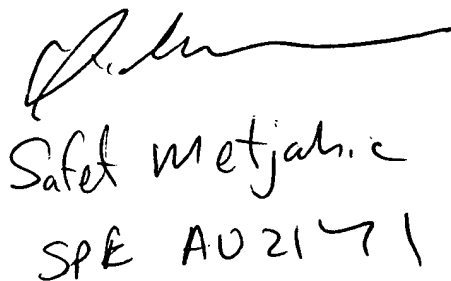 Safet Metjahic
SPE AU 2171